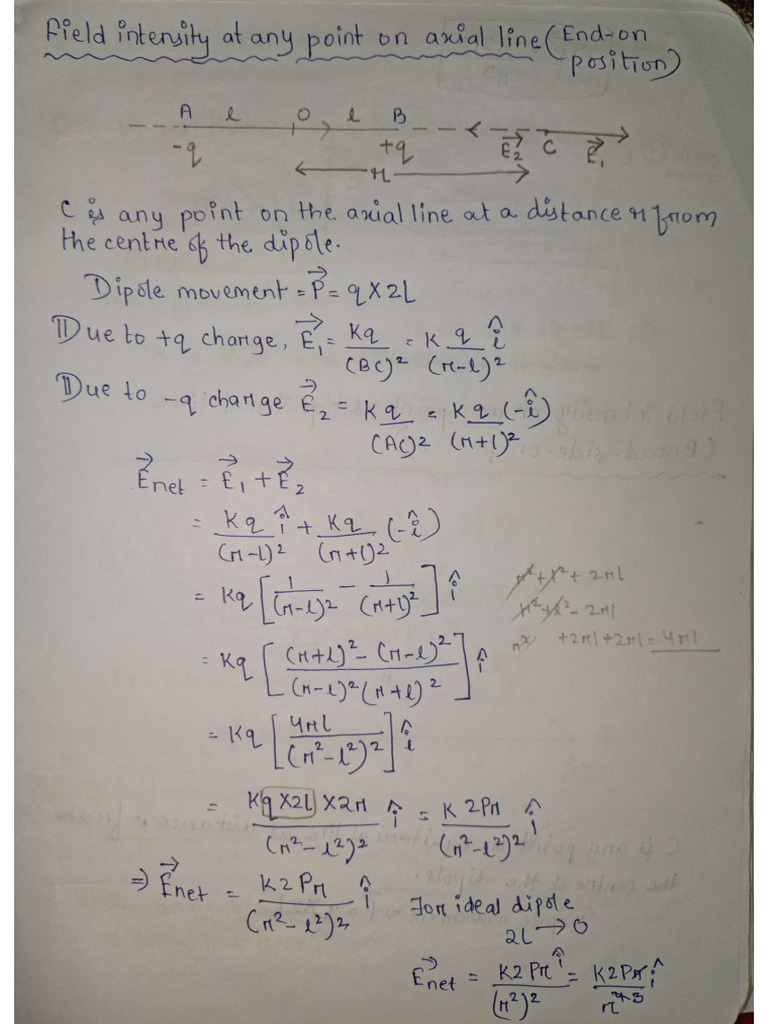 Field intensity at any point on axial line (End-on
position)
A l O l B
-q +q E⃗₂ C E⃗₁
r
C is any point on the axial line at a distance r from
the centre of the dipole.
Dipole movement = P⃗ = q X 2L
Due to +q charge, E⃗₁ = Kq/(BC)² = K q/(r-l)² î
Due to -q charge E⃗₂ = Kq/(AC)² = Kq/(r+l)² (-î)
E⃗net = E⃗₁ + E⃗₂
= Kq/(r-l)² î + Kq/(r+l)² (-î)
= Kq [1/(r-l)² - 1/(r+l)²] î
r² + l² + 2rl
r² + l² - 2rl
r² +2rl + 2rl = 4rl
= Kq [((r+l)² - (r-l)²)/((r-l)² (r+l)²)] î
= Kq [4rl/(r² - l²)²] î
= Kq X 2l X 2r/(r² - l²)² î = K 2Pr/(r² - l²)² î
⇒ E⃗net = K2Pr/(r² - l²)² î
For ideal dipole
2L → 0
E⃗net = K2Pr î/(r²)² = K2Pr î/r⁴ ³